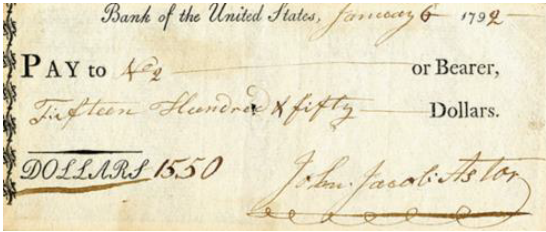 Bank of the United States, January 6 1792
PAY to No 2 or Bearer,
Fifteen Hundred & fifty Dollars.
DOLLARS 1550
John Jacob Astor